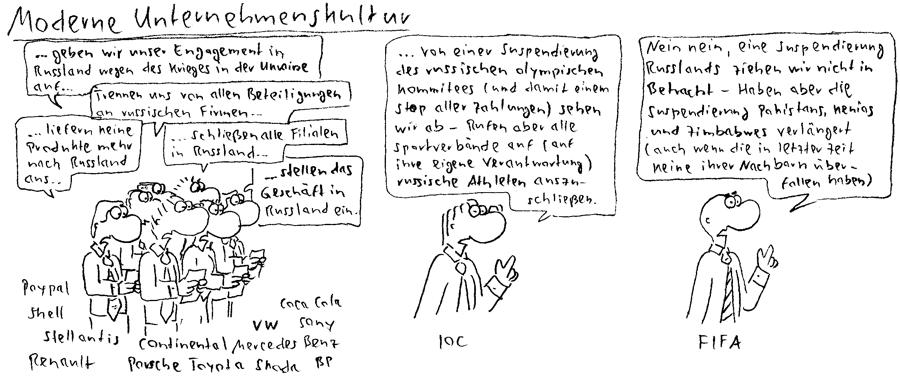 Moderne Unternehmenskultur
... geben wir unser Engagement in
Russland wegen des Krieges in der Ukraine
auf...
Trennen uns von allen Beteiligungen
an russischen Firmen...
... liefern keine
Produkte mehr
nach Russland
aus...
... schließen alle Filialen
in Russland...
... stellen das
Geschäft in
Russland ein.
Paypal
Shell
Stellantis
Renault
Continental
Porsche
Toyota
Mercedes Benz
VW
Coca Cola
Sony
Skoda
BP
... von einer Suspendierung
des russischen olympischen
Kommitees (und damit einem
Stop aller Zahlungen) sehen
wir ab – Rufen aber alle
Sportverbände auf (auf
ihre eigene Verantwartung)
russische Athleten auszu-
schließen.
IOC
Nein nein, eine Suspendierung
Russlands ziehen wir nicht in
Betracht – Haben aber die
Suspendierung Pakistans, Kenias
und Zimbabwes verlängert
(auch wenn die in letzter Zeit
keine ihrer Nachbarn über-
fallen haben)
FIFA